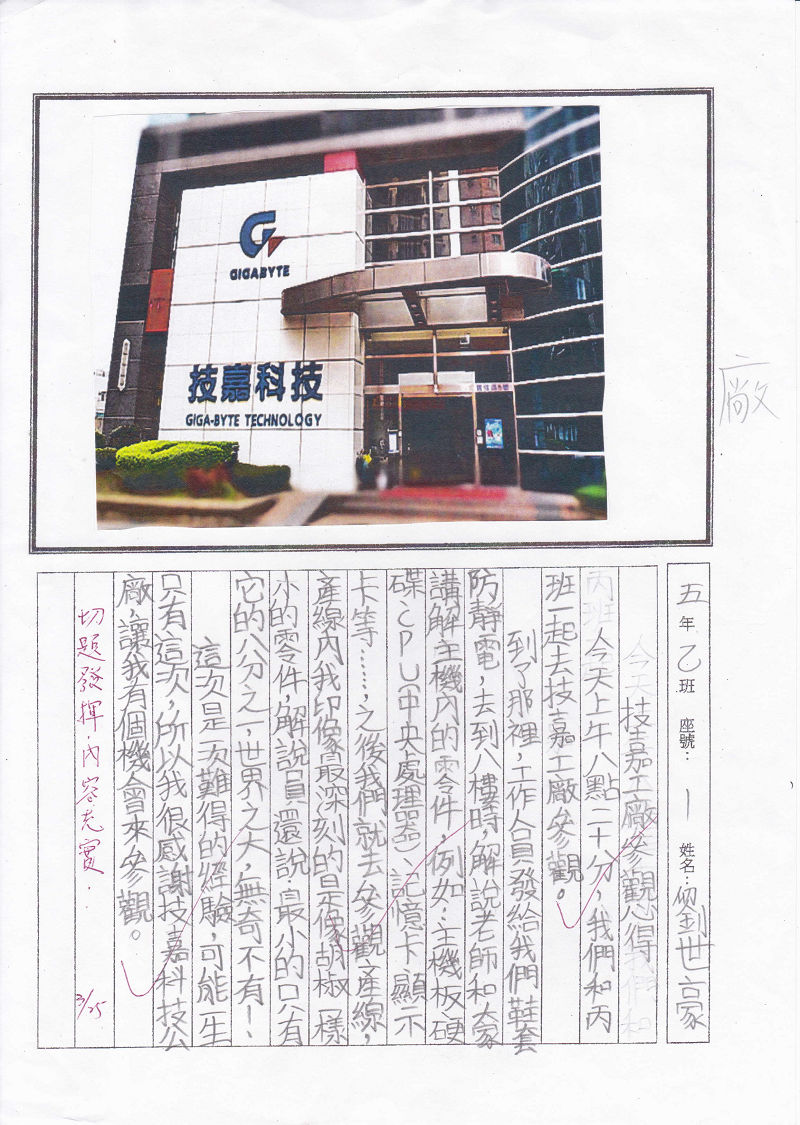 GIGABYTE
技嘉科技
GIGA-BYTE TECHNOLOGY
廠
五年乙班 座號：1 姓名：劉世豪
技嘉工廠參觀心得
今天上午八點二十分，我們和丙
班一起去技嘉工廠參觀。
到了那裡，工作人員發給我們鞋套
防靜電，去到八樓時，解說老師和大家
講解主機內的零件，例如：主機板、硬
碟、CPU(中央處理器)、記憶卡、顯示
卡等……，之後我們就去參觀產線，
產線內我印像最深刻的是像胡椒一樣
小的零件，解說員還說最小的只有
它的八分之一，世界之大，無奇不有！
這次是一次難得的經驗，可能一生
只有這次，所以我很感謝技嘉科技公
廠，讓我有個機會來參觀。
切題發揮．內容充實．
3/25